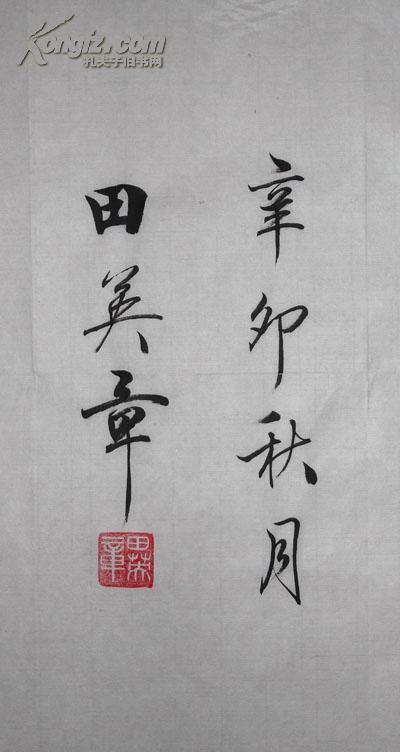 Kongfz.com
孔夫子旧书网
辛卯秋月
田英章
田英章